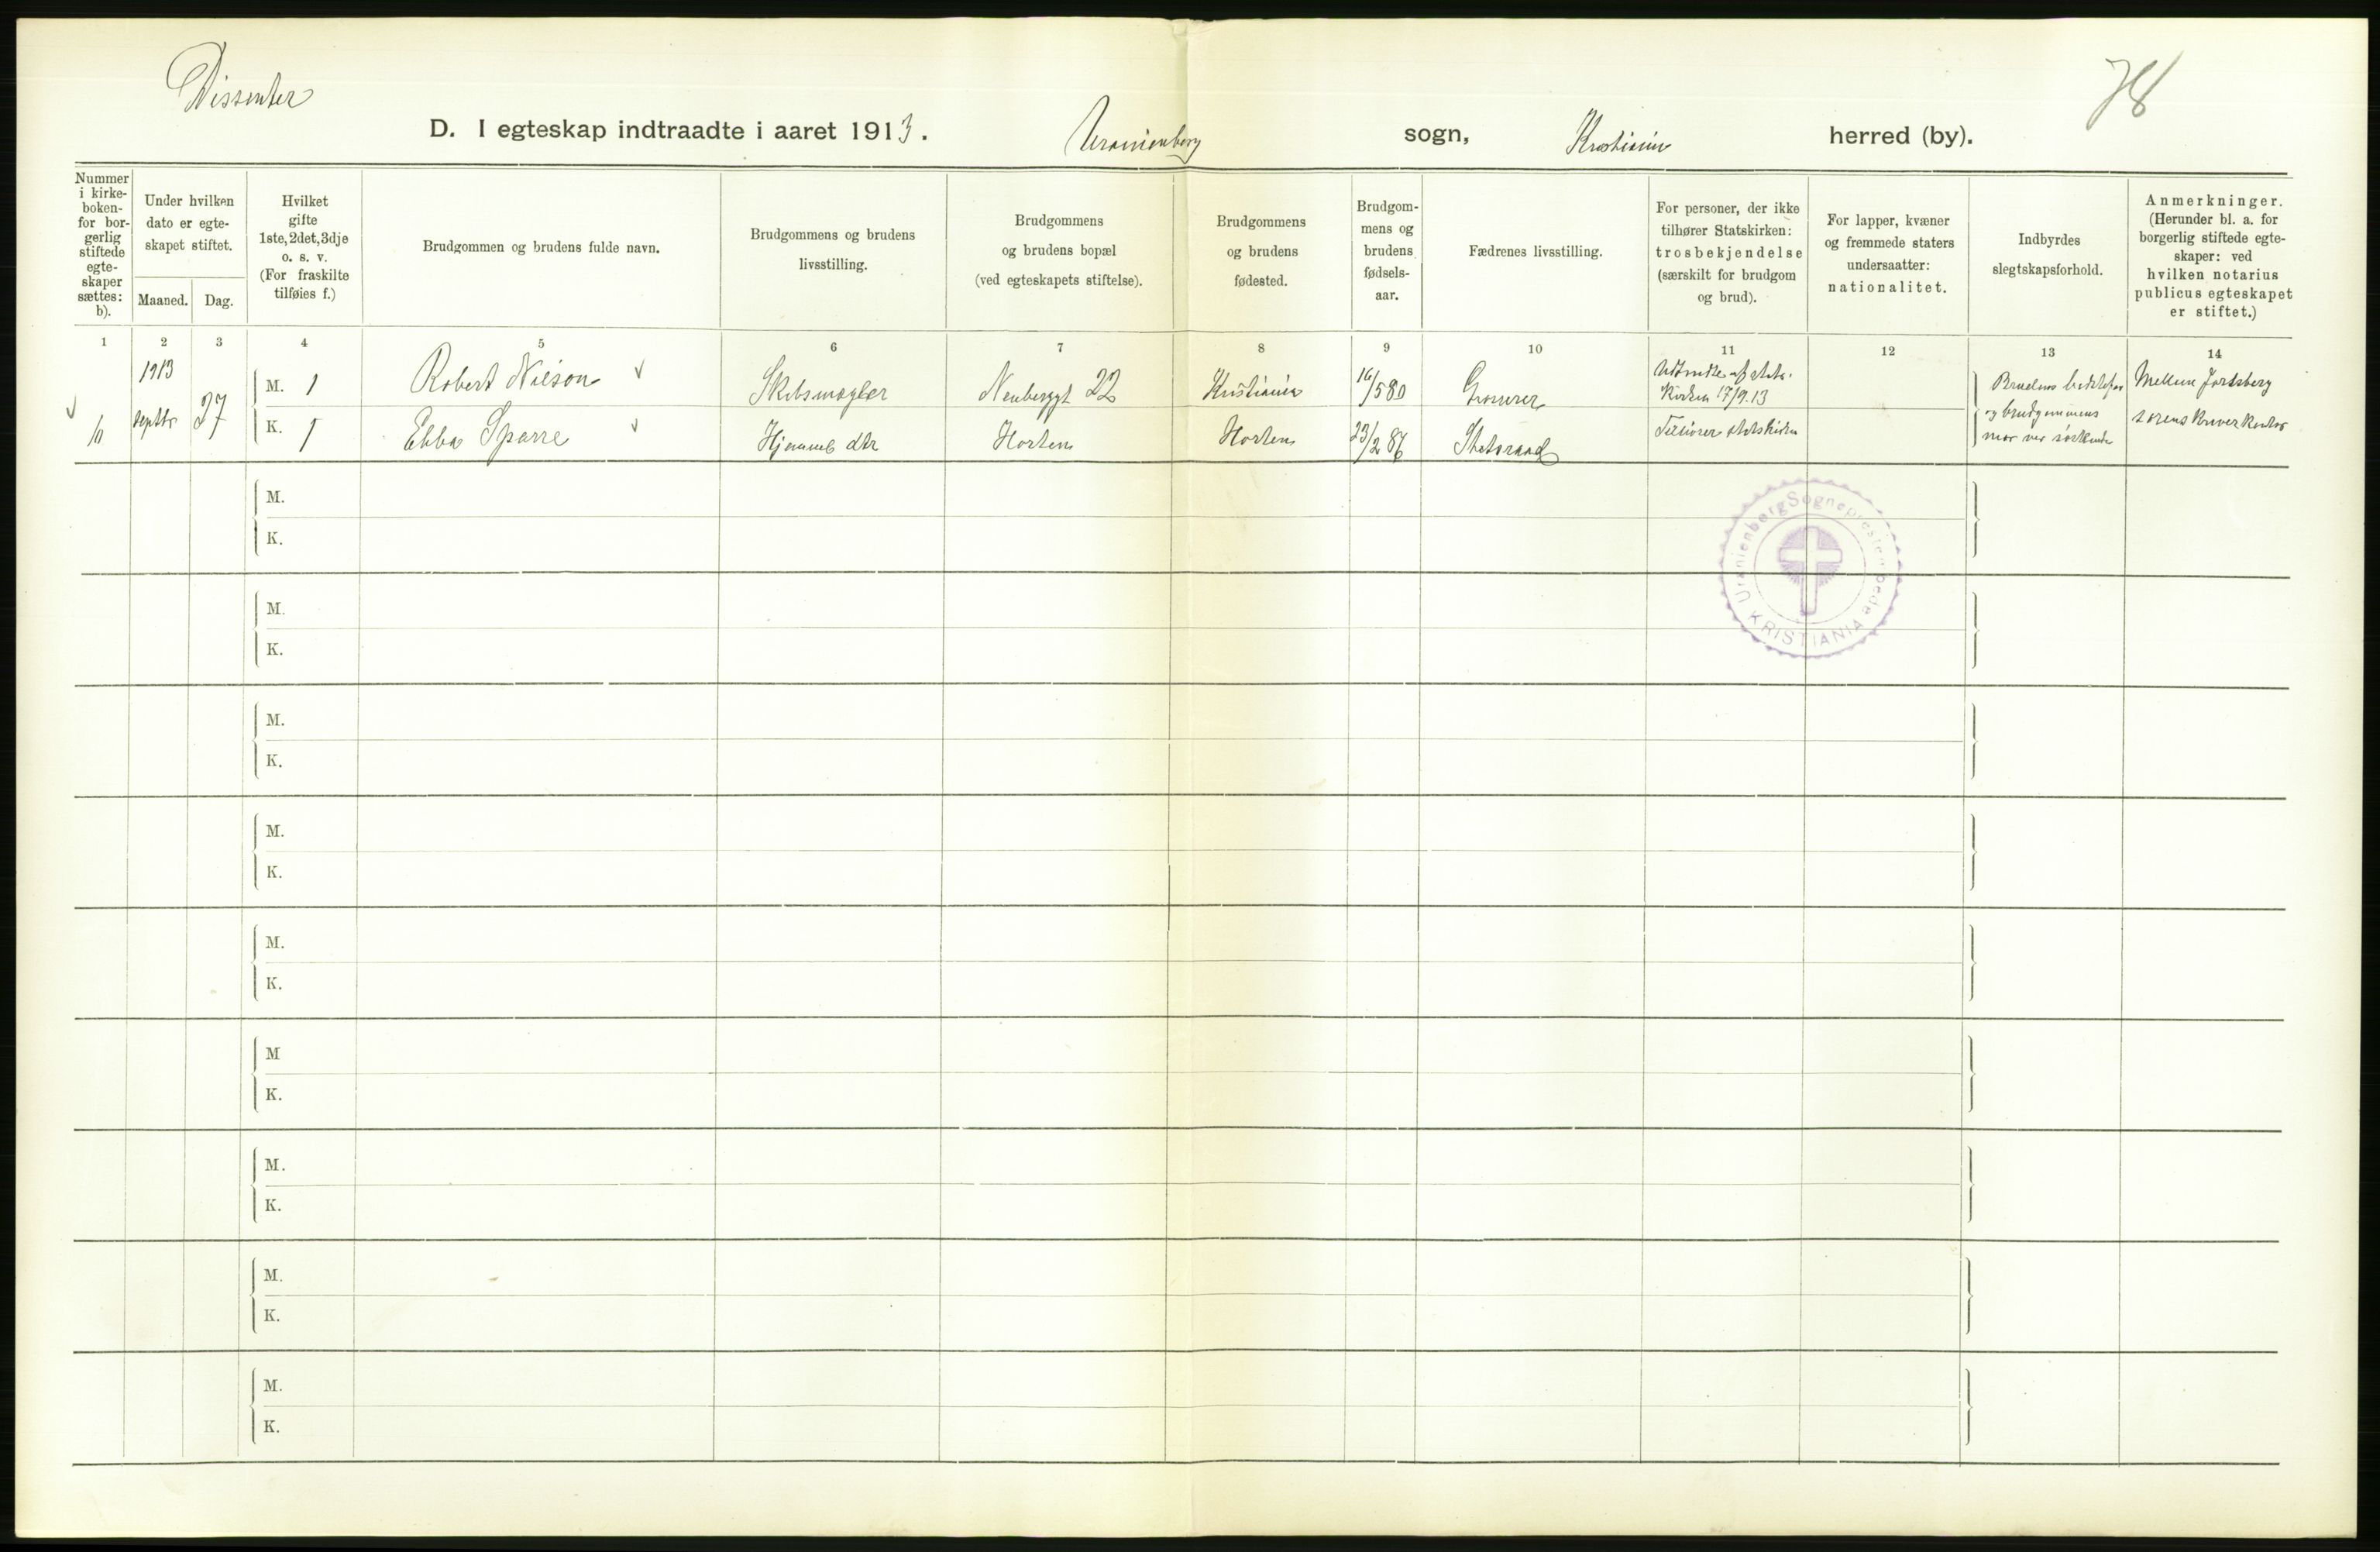 Dissenter
78
D. I egteskap indtraadte i aaret 1913. Uranienborg sogn, Kristiania herred (by).
Nummer
i kirke-
boken-
for bor-
gerlig
stiftede
egte-
skaper
sættes:
b).
Under hvilken
dato er egte-
skapet stiftet.
Maaned. Dag.
Hvilket
gifte
1ste, 2det, 3dje
o. s. v.
(For fraskilte
tilføies f.)
Brudgommen og brudens fulde navn.
Brudgommens og brudens
livsstilling.
Brudgommens
og brudens bopæl
(ved egteskapets stiftelse).
Brudgommens
og brudens
fødested.
Brudgom-
mens og
brudens
fødsels-
aar.
Fædrenes livsstilling.
For personer, der ikke
tilhører Statskirken:
trosbekjendelse
(særskilt for brudgom
og brud).
For lapper, kvæner
og fremmede staters
undersaatter:
nationalitet.
Indbyrdes
slegtskapsforhold.
Anmerkninger.
(Herunder bl. a. for
borgerlig stiftede egte-
skaper: ved
hvilken notarius
publicus egteskapet
er stiftet.)
1 2 3 4 5 6 7 8 9 10 11 12 13 14
1913
Septbr 27
M. 1 Robert Nilson Skibsmægler Neuberggt 22 Kristiania 16/5 80 Grosserer
Udmeldt af stats-
kirken 17/9.13
K. 1 Ebba Sparre Hjemmev dtr Horten Horten 23/2 86 Statsraad
Tilhører statskirken
Brudens bedstefar
og brudgommens
mor var søskende
Mellem Jarlsberg
sorenskriverkontor
M.
K.
M.
K.
M.
K.
M.
K.
M.
K.
M
K.
M.
K.
M.
K.
M.
K.
Uranienborg Sogneprestembede
KRISTIANIA